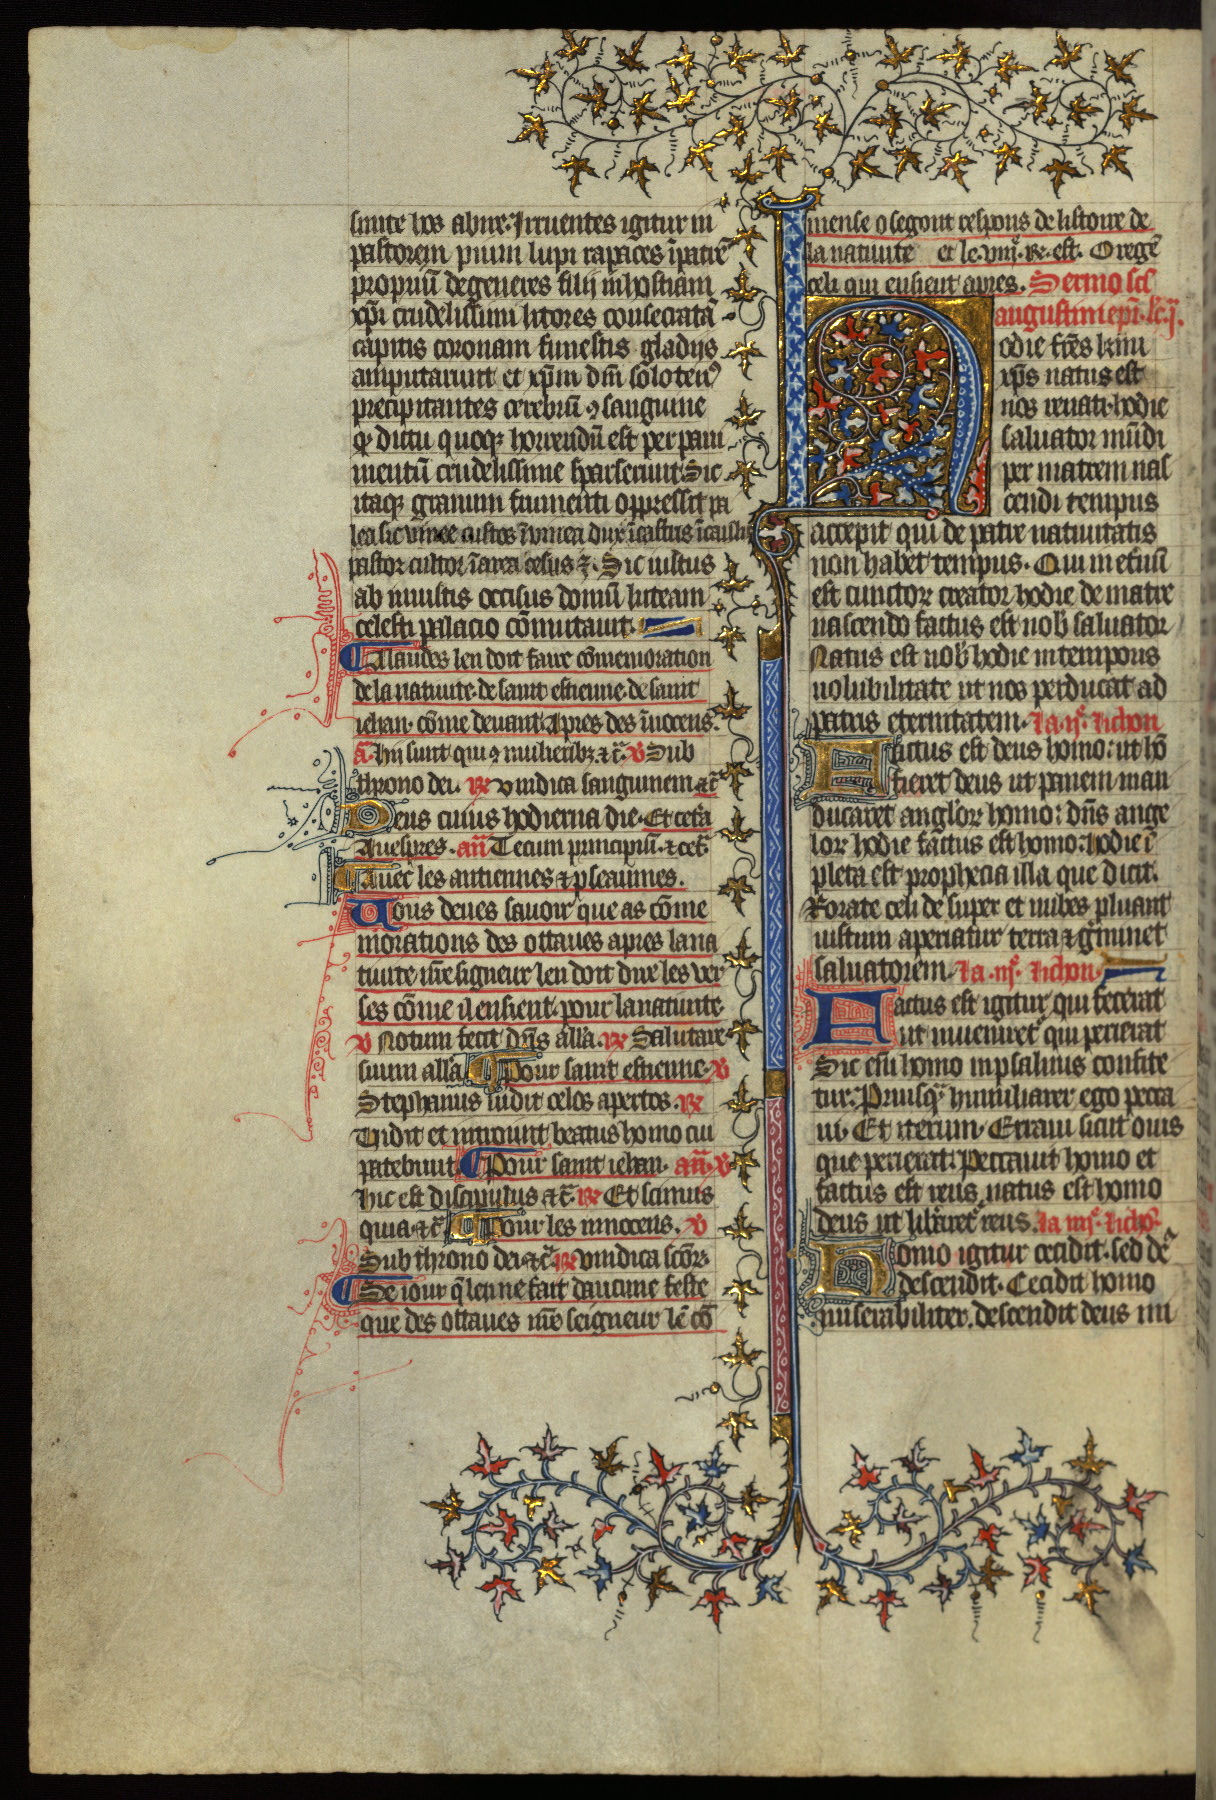 sinite hos abire. Irruentes igitur in
pastorem pium lupi rapaces ī patrē
propriū degeneres filij in hostiam
xp̄i crudelissimi litores consecratā
capitis coronam funestis gladijs
amputarunt et xp̄m dm̄ solo ten9
precipitantes cerebrū ⁊ sanguine
qd̄ dictu quoqꝫ horrendū est per paui
mentū crudelissime sparserunt. Sic
itaqꝫ granum frumenti oppressit pa
lea sic vinee custos ī vinea dux ī castris ī caulis
pastor cultor ī area cesus ⁊. Sic iustus
ab iniustis occisus domū luteam
celesti palacio cōmutauit.
A laudes len doit faire cōmemoration
de la natiuite. de saint estienne. de saint
iehan. cōme deuant. Apres des īnocens.
ā. Hii sunt qui ⁊ mulieribꝫ ⁊c̄. v̄ Sub
throno dei. ℞ vindica sanguinem ⁊c̄
Deus cuius hodierna die. Et cetā
A vespres. an̄ Tecum principiū. ⁊ cet̄
Auec les antiennes ⁊ pseaumes.
Uous deues sauoir que as cōme
morations des ottaues apres la na
tiuite nr̄e signeur len doit dire les ver
ses cōme il ensient. pour la natiuite.
v̄ Notum fecit dn̄s all̄a. ℞ Salutare
suum all̄a. Pour saint estienne. v̄
Stephanus uidit celos apertos. ℞
Vidit et introiuit beatus homo cui
patebunt. Pour saint iehan. an̄. v̄
Hic est discipulus ⁊c̄ ℞ Et scimus
quia ⁊c̄ Pour les innocens. v̄
Sub throno dei. ⁊c̄. ℞ vindica scōꝝ.
Se iour q̄ len ne fait daucune feste
que des ottaues nr̄e seigneur le cō
mense o segont respons de listoire de
la natiuite et le. viiij. ℞. est. O regē
celi qui ensient apres. Sermo sc̄i
augustini ep̄i. lc̄. j.
Hodie fr̄es k̄mi
xp̄s natus est
nos renati. hodie
saluator mūdi
per matrem nas
cendi tempus
accepit qui de patre natiuitatis
non habet tempus. Qui metiuū
est cunctoꝝ creator hodie de matre
nascendo factus est nob̄ saluator
Natus est nob̄ hodie in temporis
uolubilitate ut nos perducat ad
patris eternitatem. la. ij. lichon
Factus est deus homo: ut hō
fieret deus ut panem man
ducaret angl̄oꝝ homo: dn̄s ange
loꝝ hodie factus est homo: hodie ī
pleta est prophecia illa que dicit.
Rorate celi de super et nubes pluant
iustum aperiatur terra ⁊ ḡminet
saluatorem. la. iij. lichon.
Factus est igitur, qui fecerat
ut inueniret̉ qui perierat
Sic em̄ homo in psalmis confite
tur. Priusq̄ humiliarer ego pecca
ui. Et iterum. Erraui sicut ouis
que perierat: Peccauit homo et
factus est reus, natus est homo
deus ut lib̄aret̉ reus. la. iiij. lichō.
Homo igitur cecidit. sed dē
descendit. Cecidit homo
miserabiliter. descendit deus mi